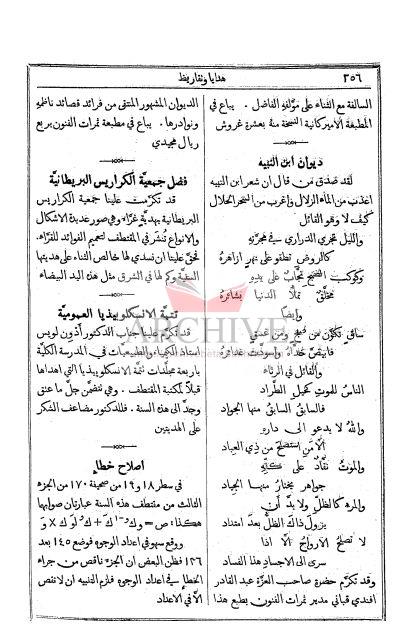 ٣٥٦
هدايا وتقاريظ
السالفة مع الثناء على مؤلفهِ الفاضل . يباع في
المطبعة الاميركانية النسخة منهُ بعشرة غروش
ديوان ابن النبيه
لقد صدق من قال ان شعر ابن النبيه
اعذب من الماء الزلال واغرب من السحر الحلال
كيف لا وهو القائل
والليل تجري الدراري في مجرّتهِ
كالروض تطفو على نهرٍ ازاهرهُ
وكوكب الصبح نجّاب على يدهِ
مخلّق تملأ الدنيا بشائرهُ
وايضًا
ساقٍ تكوّن من صبحٍ ومن غسقٍ
فابيضّ خدّاهُ واسودّت غدائرهُ
والقائل في الرثاء
الناسُ للموت كخيل الطراد
فالسابق السابق منها الجواد
واللهُ لا يدعو الى دارهِ
الّا من استصلح من ذي العباد
والموت نقّاد على كفّهِ
جواهر يختار منها الجياد
والمرء كالظلّ ولا بدّ ان
يزول ذاك الظلّ بعد امتداد
لا تصلح الارواح الّا اذا
سرى الى الاجساد هذا الفساد
وقد تكرّم حضرة صاحب العزّة عبد القادر
افندي قباني مدير ثمرات الفنون بطبع هذا
الديوان المشهور المنتقى من فرائد قصائد ناظمهِ
ونوادرها . يباع في مطبعة ثمرات الفنون بربع
ريال مجيدي
فضل جمعية الكراريس البريطانيّة
قد تكرّمت علينا جمعية الكراريس
البريطانية بهدية غرّاء وهي صور عديدة الاشكال
والانواع تُنشَر في المقتطف لتعميم الفوائد للقرّاء.
فحقّ علينا ان نسدي لها خالص الثناء على هديتها
السنية وكم لها في الشرق مثل هذه اليد البيضاء
تتمّة الانسكلوبيذيا العموميّة
قد تكرّم علينا جناب الدكتور ادون لويس
استاذ الكيمياء والطبيعيات في المدرسة الكلية
باربعة مجلدات تتمّة الانسكلوبيذيا التي اهداها
قبلاً لمكتبة المقتطف. وهي تتضمن جلّ ما عنق
وجدّ الى هذه السنة . فللدكتور مضاعف الشكر
على الهديتين
اصلاح خطاءٍ
في سطر ١٨ و١٩ من صحيفة ١٧٠ من الجزء
الثالث من مقتطف هذه السنة عبارتان صوابهما
ووقع سهو في اعداد الوجوه فوضع ١٤٥ بعد
١٣٦ فظن البعض ان الجزء ناقص من جراء
الخطاءِ في اعداد الوجوه فلزم التنبيه ان لا نقص
الّا في الاعداد
ARCHIVE